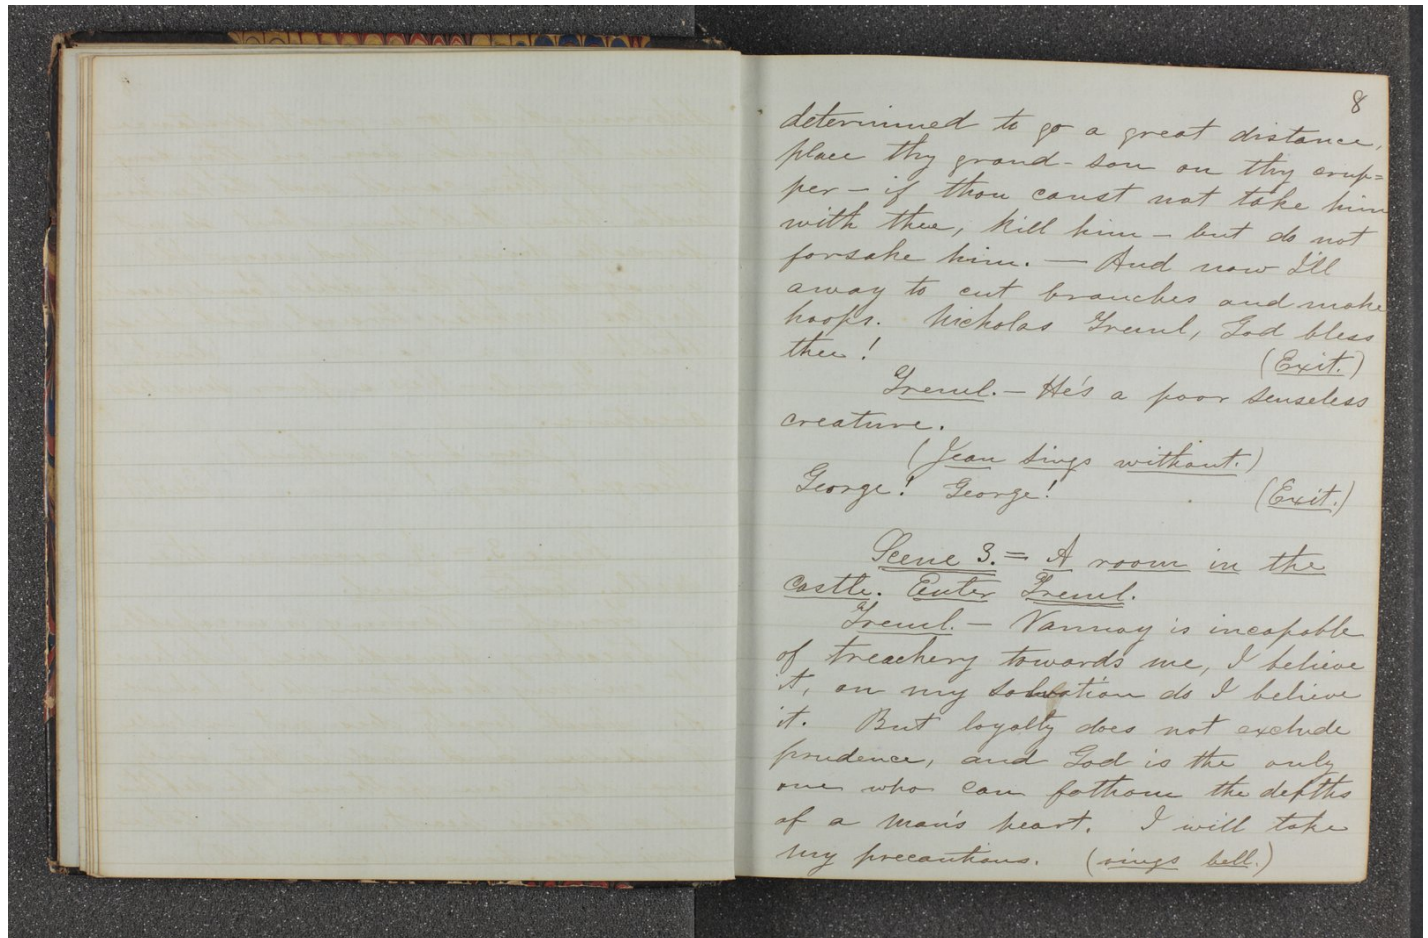 8
determined to go a great distance,
place thy grand-son on thy crup=
per – if thou canst not take him
with thee, kill him – but do not
forsake him. — And now I'll
away to cut branches and make
hoops. Nicholas Treml, God bless
thee! (Exit.)
Treml. – He's a poor senseless
creature.
(Jean sings without.)
George! George! (Exit.)
Scene 3. = A room in the
castle. Enter Treml.
Treml. – Vannoy is incapable
of treachery towards me, I believe
it, on my salvation do I believe
it. But loyalty does not exclude
prudence, and God is the only
one who can fathom the depths
of a man's heart. I will take
my precautions. (rings bell.)